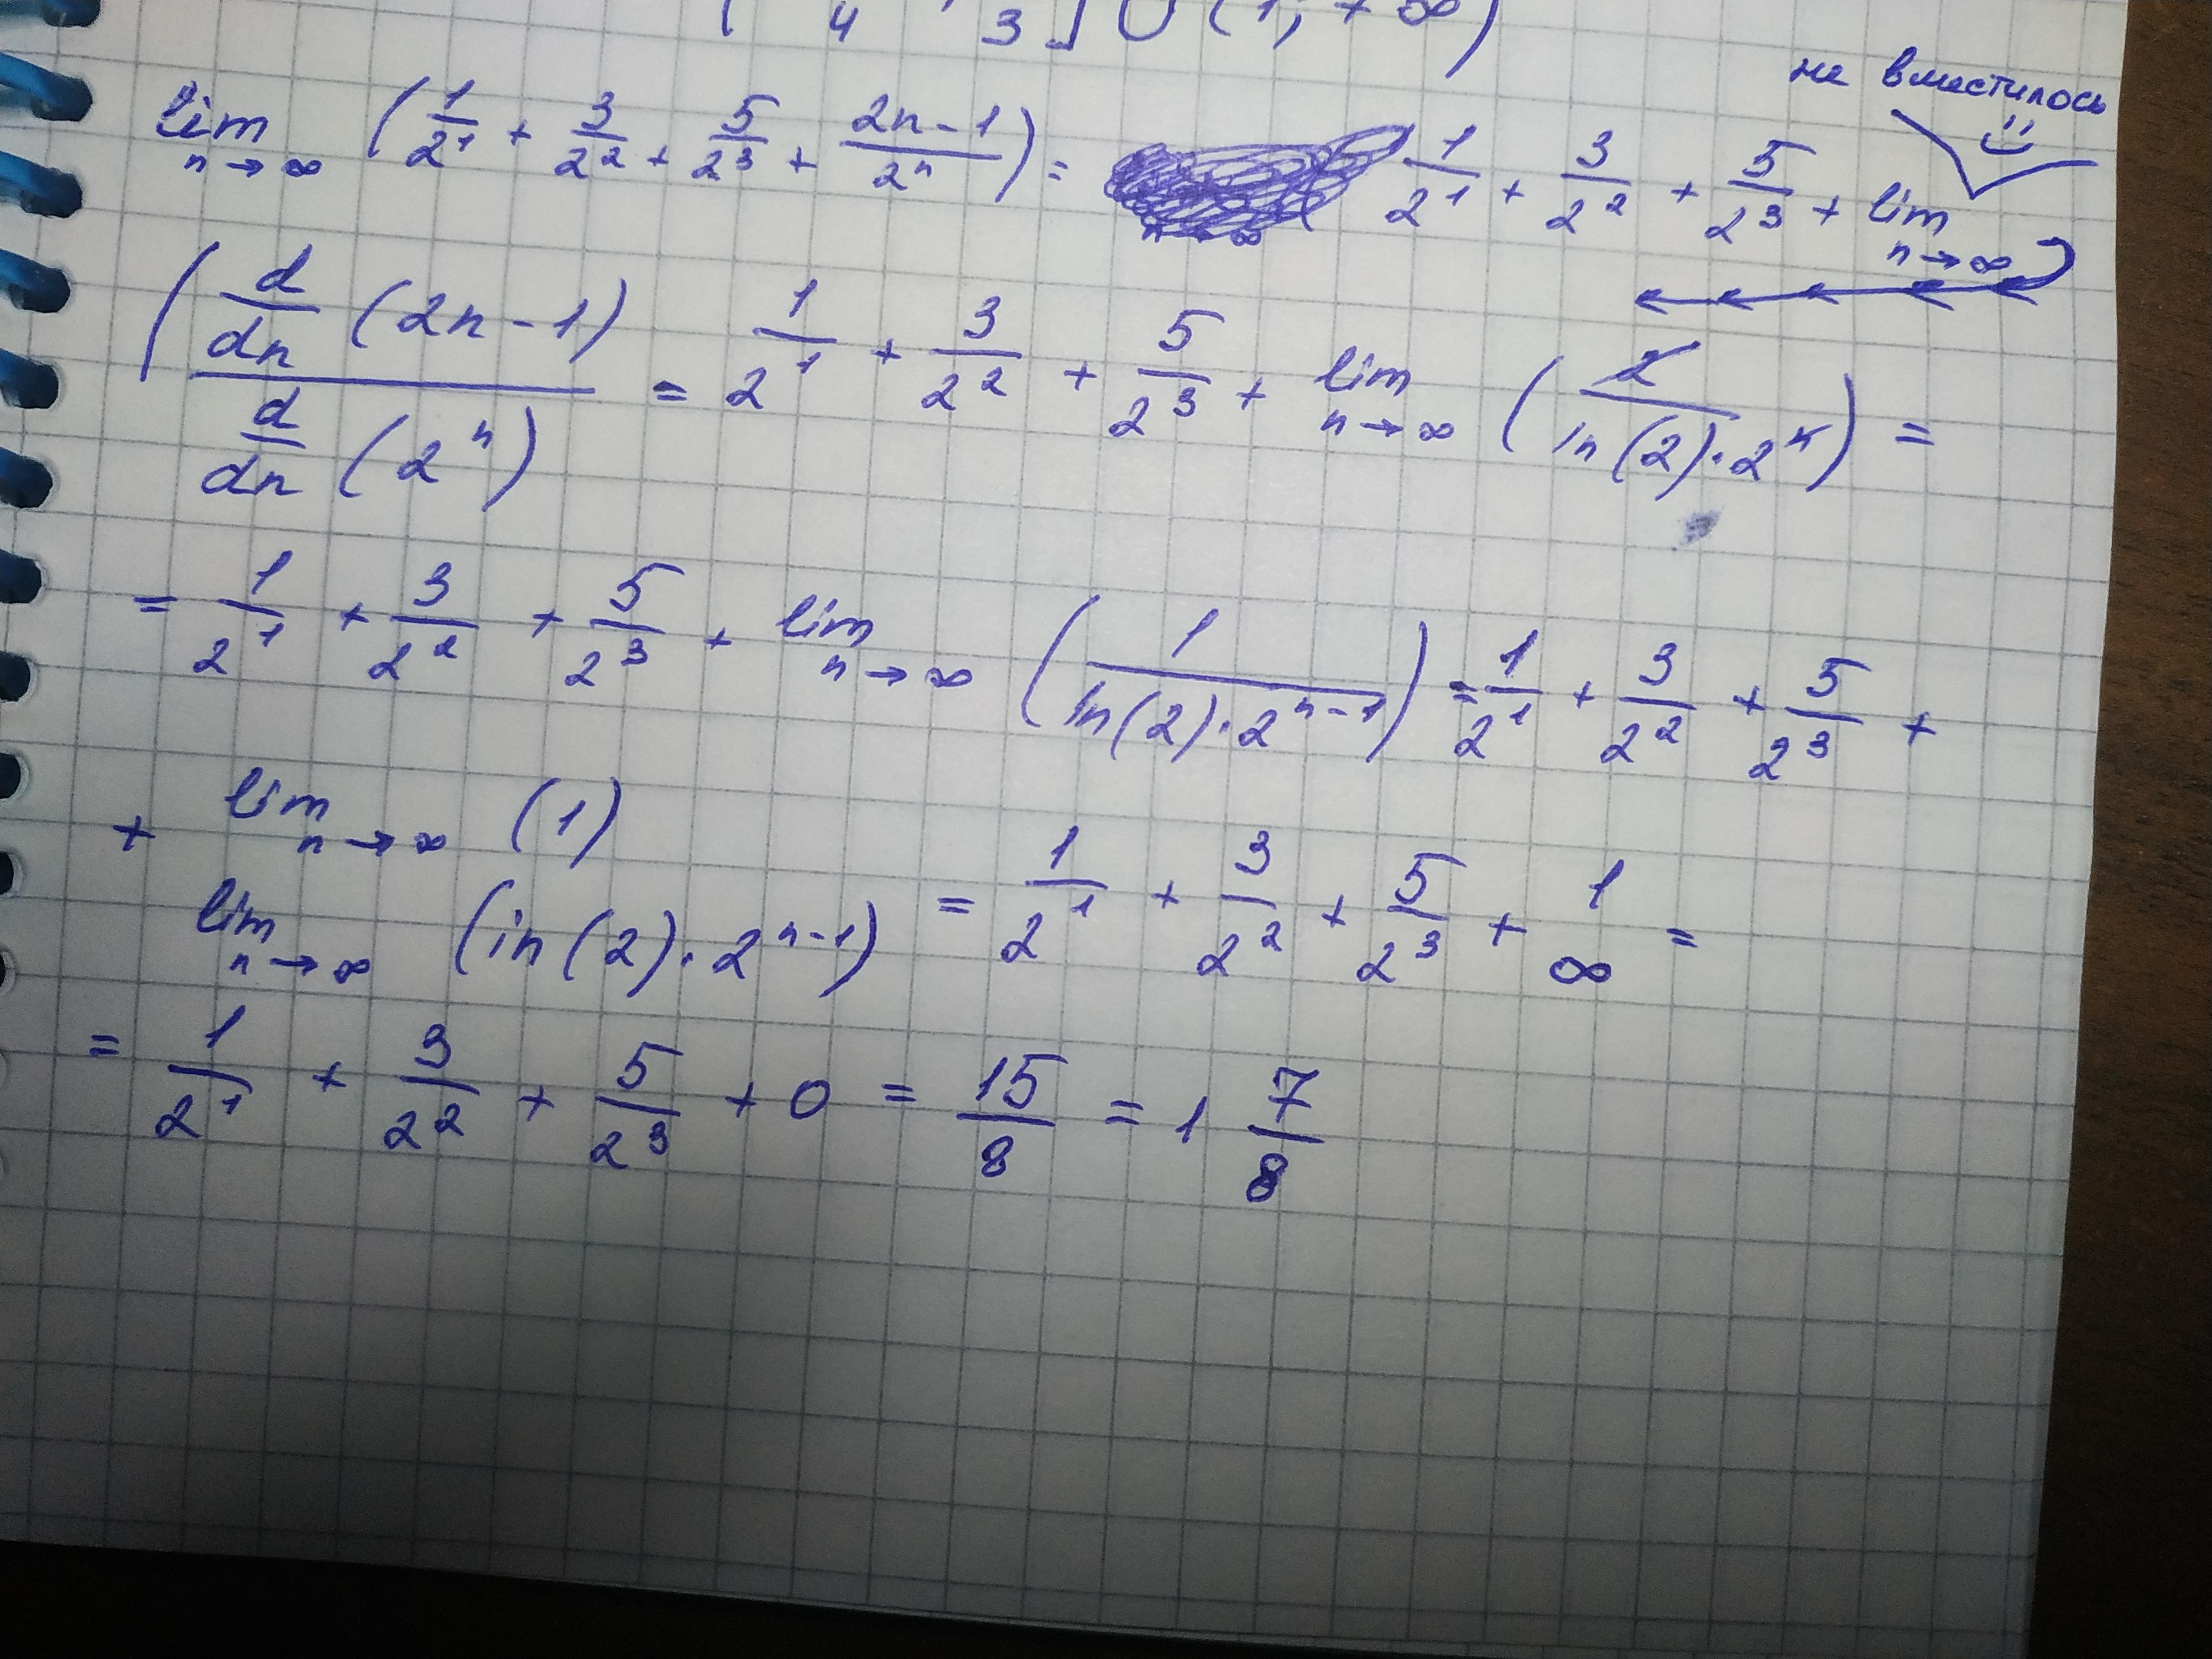 4 3 ] ∪ (1; +∞)
не вместилось
lim n→∞ (1/2^1 + 3/2^2 + 5/2^3 + (2n-1)/2^n) = 1/2^1 + 3/2^2 + 5/2^3 + lim n→∞
(d/dn (2n-1) / d/dn (2^n) = 1/2^1 + 3/2^2 + 5/2^3 + lim n→∞ (2/(ln(2)·2^n)) =
= 1/2^1 + 3/2^2 + 5/2^3 + lim n→∞ (1/(ln(2)·2^(n-1))) = 1/2^1 + 3/2^2 + 5/2^3 +
+ lim n→∞ (1) / lim n→∞ (ln(2)·2^(n-1)) = 1/2^1 + 3/2^2 + 5/2^3 + 1/∞ =
= 1/2^1 + 3/2^2 + 5/2^3 + 0 = 15/8 = 1 7/8